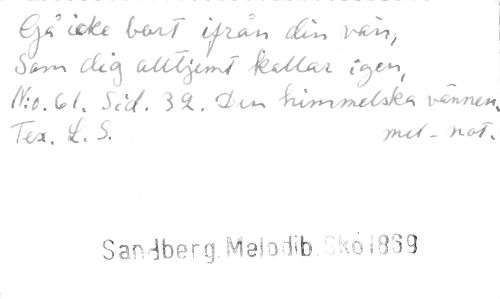 Gå icke bort ifrån din vän,
Som dig alltjemt kallar igen,
N:o. 61. Sid. 32. Den himmelska vännen.
Tex. L. S. mel - not.
Sandberg. Melodib. Skö 1869